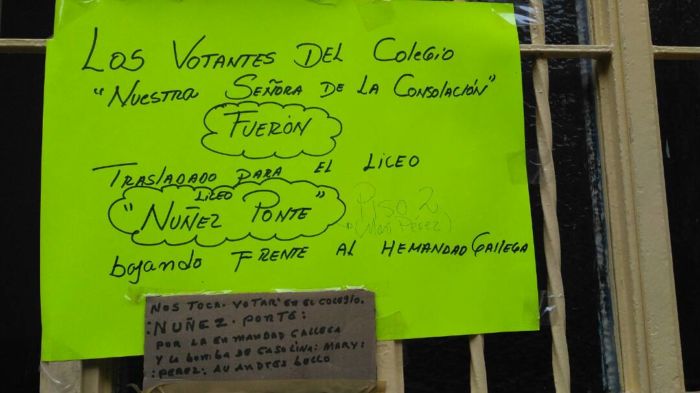 Los Votantes Del Colegio
"Nuestra Señora de la Consolación"
Fuerón
Trasladado para el Liceo
Liceo
"Nuñez Ponte"
Piso 2
(Mary Pérez)
bajando Frente al Hemandad Gallega
Nos Toca. Votar en el colegio.
:Nuñez. Ponte:
por la en mandad Gallega
y la bomba de Gasolina: Mary:
:Perez: Av Andres bello